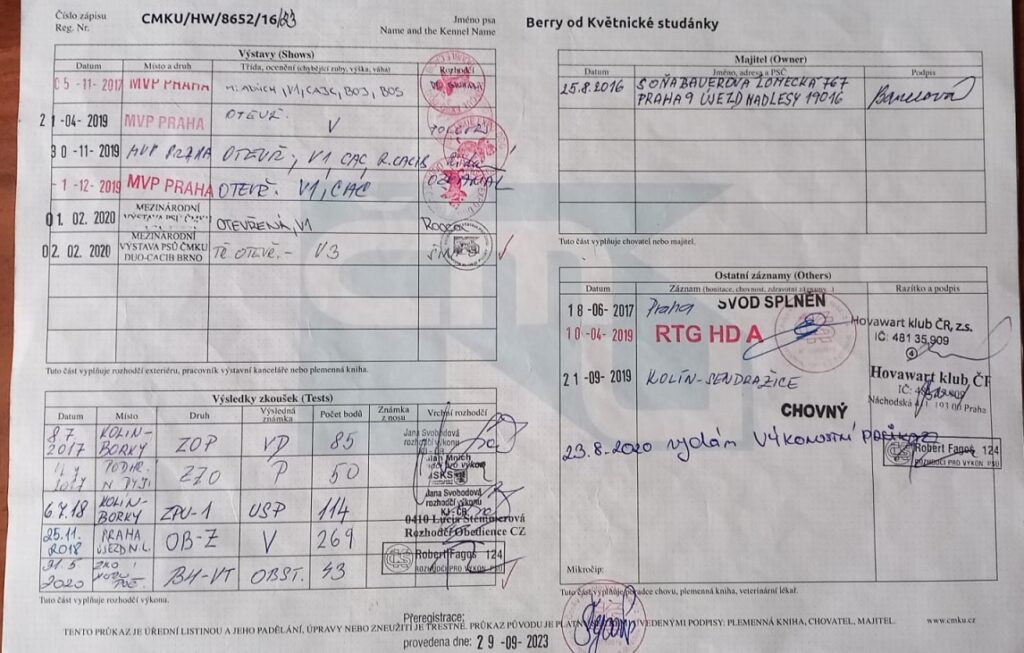 Číslo zápisu
Reg. Nr.
CMKU/HW/8652/16/
Jméno psa
Name and the Kennel Name
Berry od Květnické studánky
Výstavy (Shows)
Datum Místo a druh Třída, ocenění (chybějící zuby, výška, váha) Rozhodčí
05 -11- 2017 MVP PRAHA V1, CAJC, BOJ, BOS
21 -04- 2019 MVP PRAHA OTEVŘ. V
30 -11- 2019 MVP PRAHA OTEVŘ, V1 CAC R.CACIB
- 1 -12- 2019 MVP PRAHA OTEVŘ. V1, CAC
01. 02. 2020 MEZINÁRODNÍ OTEVŘENÁ V1
02. 02. 2020 MEZINÁRODNÍ VÝSTAVA PSŮ ČMKU DUO-CACIB BRNO OTEVŘ.- V3
Tuto část vyplňuje rozhodčí exteriéru, pracovník výstavní kanceláře nebo plemenná kniha.
Výsledky zkoušek (Tests)
Datum Místo Druh Výsledná známka Počet bodů Známka z nosu Vrchní rozhodčí
8.7. 2017 KOLÍN-BORKY ZOP VD 85 Jana Svobodová
2017 ZZO P 50
6.7.18 KOLÍN-BORKY ZPU-1 USP 114 Jana Svobodová rozhodčí výkonu
25.11. 2018 PRAHA ÚJEZD N L. OB-Z V 269 0410 Lucia Štemnicerová Rozhodčí Obedience CZ
31.5 2020 BH-VT OBST. 43 Robert Fagoš 124 ROZHODČÍ PRO VÝKON PSŮ
Tuto část vyplňuje rozhodčí výkonu.
Majitel (Owner)
Datum Jméno, adresa a PSČ Podpis
25.8.2016 SOŇA BAUEROVÁ LOMECKÁ 767
PRAHA 9 ÚJEZD NAD LESY 19016
Bauerová
Tuto část vyplňuje chovatel nebo majitel.
Ostatní záznamy (Others)
Datum Záznam (bonitace, chovnost, zdravotní záznamy..) Razítko a podpis
18 -06- 2017 Praha SVOD SPLNĚN
10 -04- 2019 RTG HD A
Hovawart klub ČR, z.s.
IČ: 481 35 909
21 -09- 2019 KOLÍN-SENDRAŽICE
CHOVNÝ
Hovawart klub ČR
Náchodská 193 00 Praha
23.8.2020 vydán VÝKONOSTNÍ PRŮKAZ
Robert Fagoš 124
ROZHODČÍ PRO VÝKON PSŮ
Mikročip:
Tuto část vyplňuje poradce chovu, plemenná kniha, veterinární lékař.
Přeregistrace:
TENTO PRŮKAZ JE ÚŘEDNÍ LISTINOU A JEHO PADĚLÁNÍ, ÚPRAVY NEBO ZNEUŽITÍ JE TRESTNÉ. PRŮKAZ PŮVODU JE PLATNÝ UVEDENÝMI PODPISY: PLEMENNÁ KNIHA, CHOVATEL, MAJITEL.
www.cmku.cz
provedena dne: 29 -09- 2023